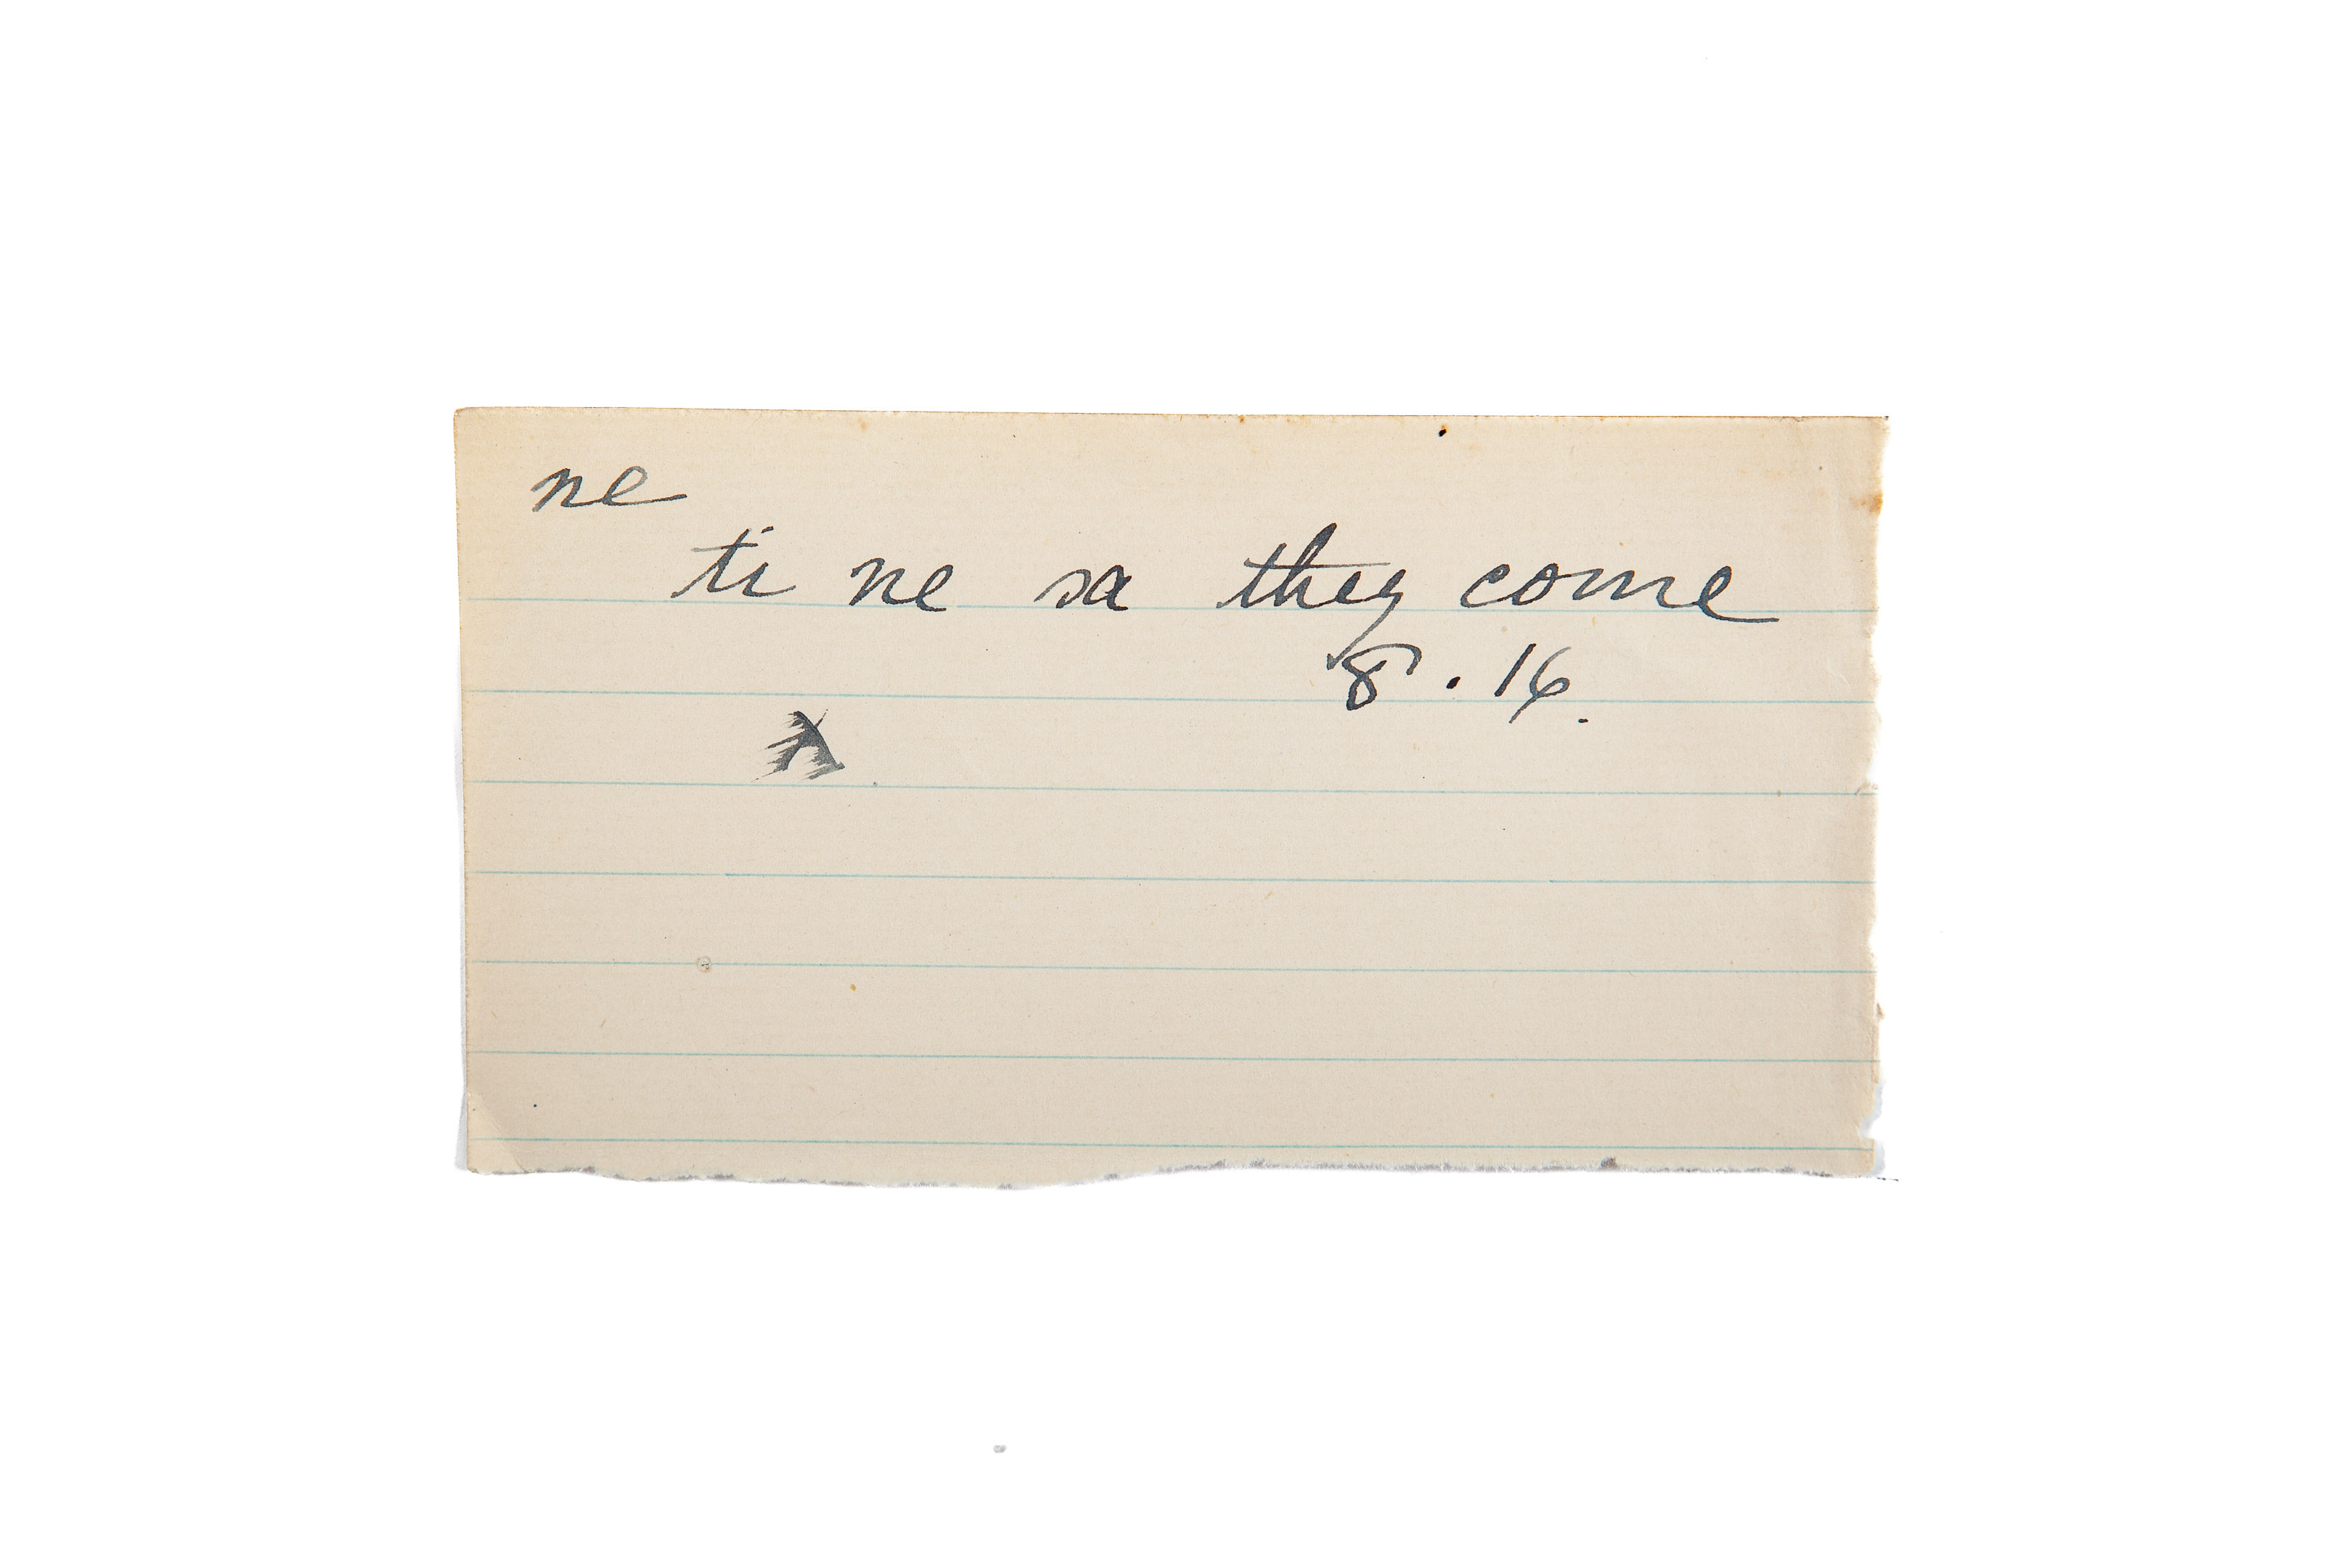 ne
ti ne sa they come
8.16.